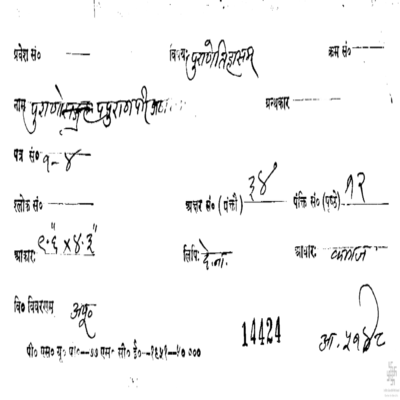 प्रवेश सं० — विषयः पुराणेतिहासम् क्रम सं० —
नाम ग्रन्थकार —
पत्र सं० १-४
श्लोक सं० — अक्षर सं० (पंक्तौ) ३४ पंक्ति सं० (पृष्ठे) १२
आकारः ९.६" x ४.३" लिपिः दे.ना. आधारः कागज
वि० विवरणम् अपू०
पी० एस० यू० पी०--७७ एस० सी० ई०--१९५१--५० ०००
14424